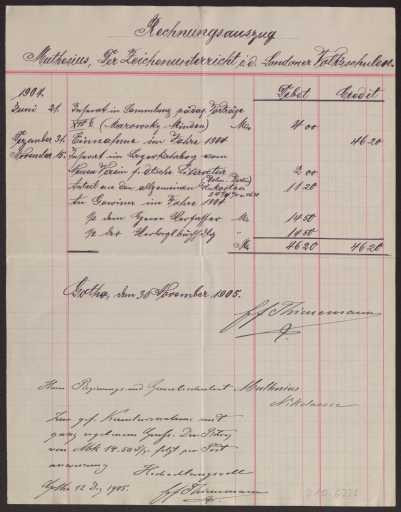 Rechnungsauszug
Muthesius, Der Zeichenunterricht i. d. Londoner Volksschulen.
1904. Debet Credit
Juni 21. Inserat in Sammlung pädag. Vorträge
XIV 6 (Marowsky, Minden) Mk 4 00
Dezember 31. Einnahme im Jahre 1904 46 20
November 15. Inserat im Lagerkatalog vom
2 00
Anteil an den allgemeinen 11 20
Gewinn im Jahre 1904
p. dem Herrn Verfasser Mk 14 50
p. der 14 50
Mk 46 20 46 20
Gotha, den 30 November 1905.
E. F. Thienemann
Herrn Regierungs- und Muthesius
Nikolassee
Zur gef. Kenntnisnahme mit
ganz ergebenem Gruss. Der Betrag
von Mk 14.50 folgt per Post
anweisung
Hochachtungsvoll
Gotha 12 Dez 1905. E. F. Thienemann